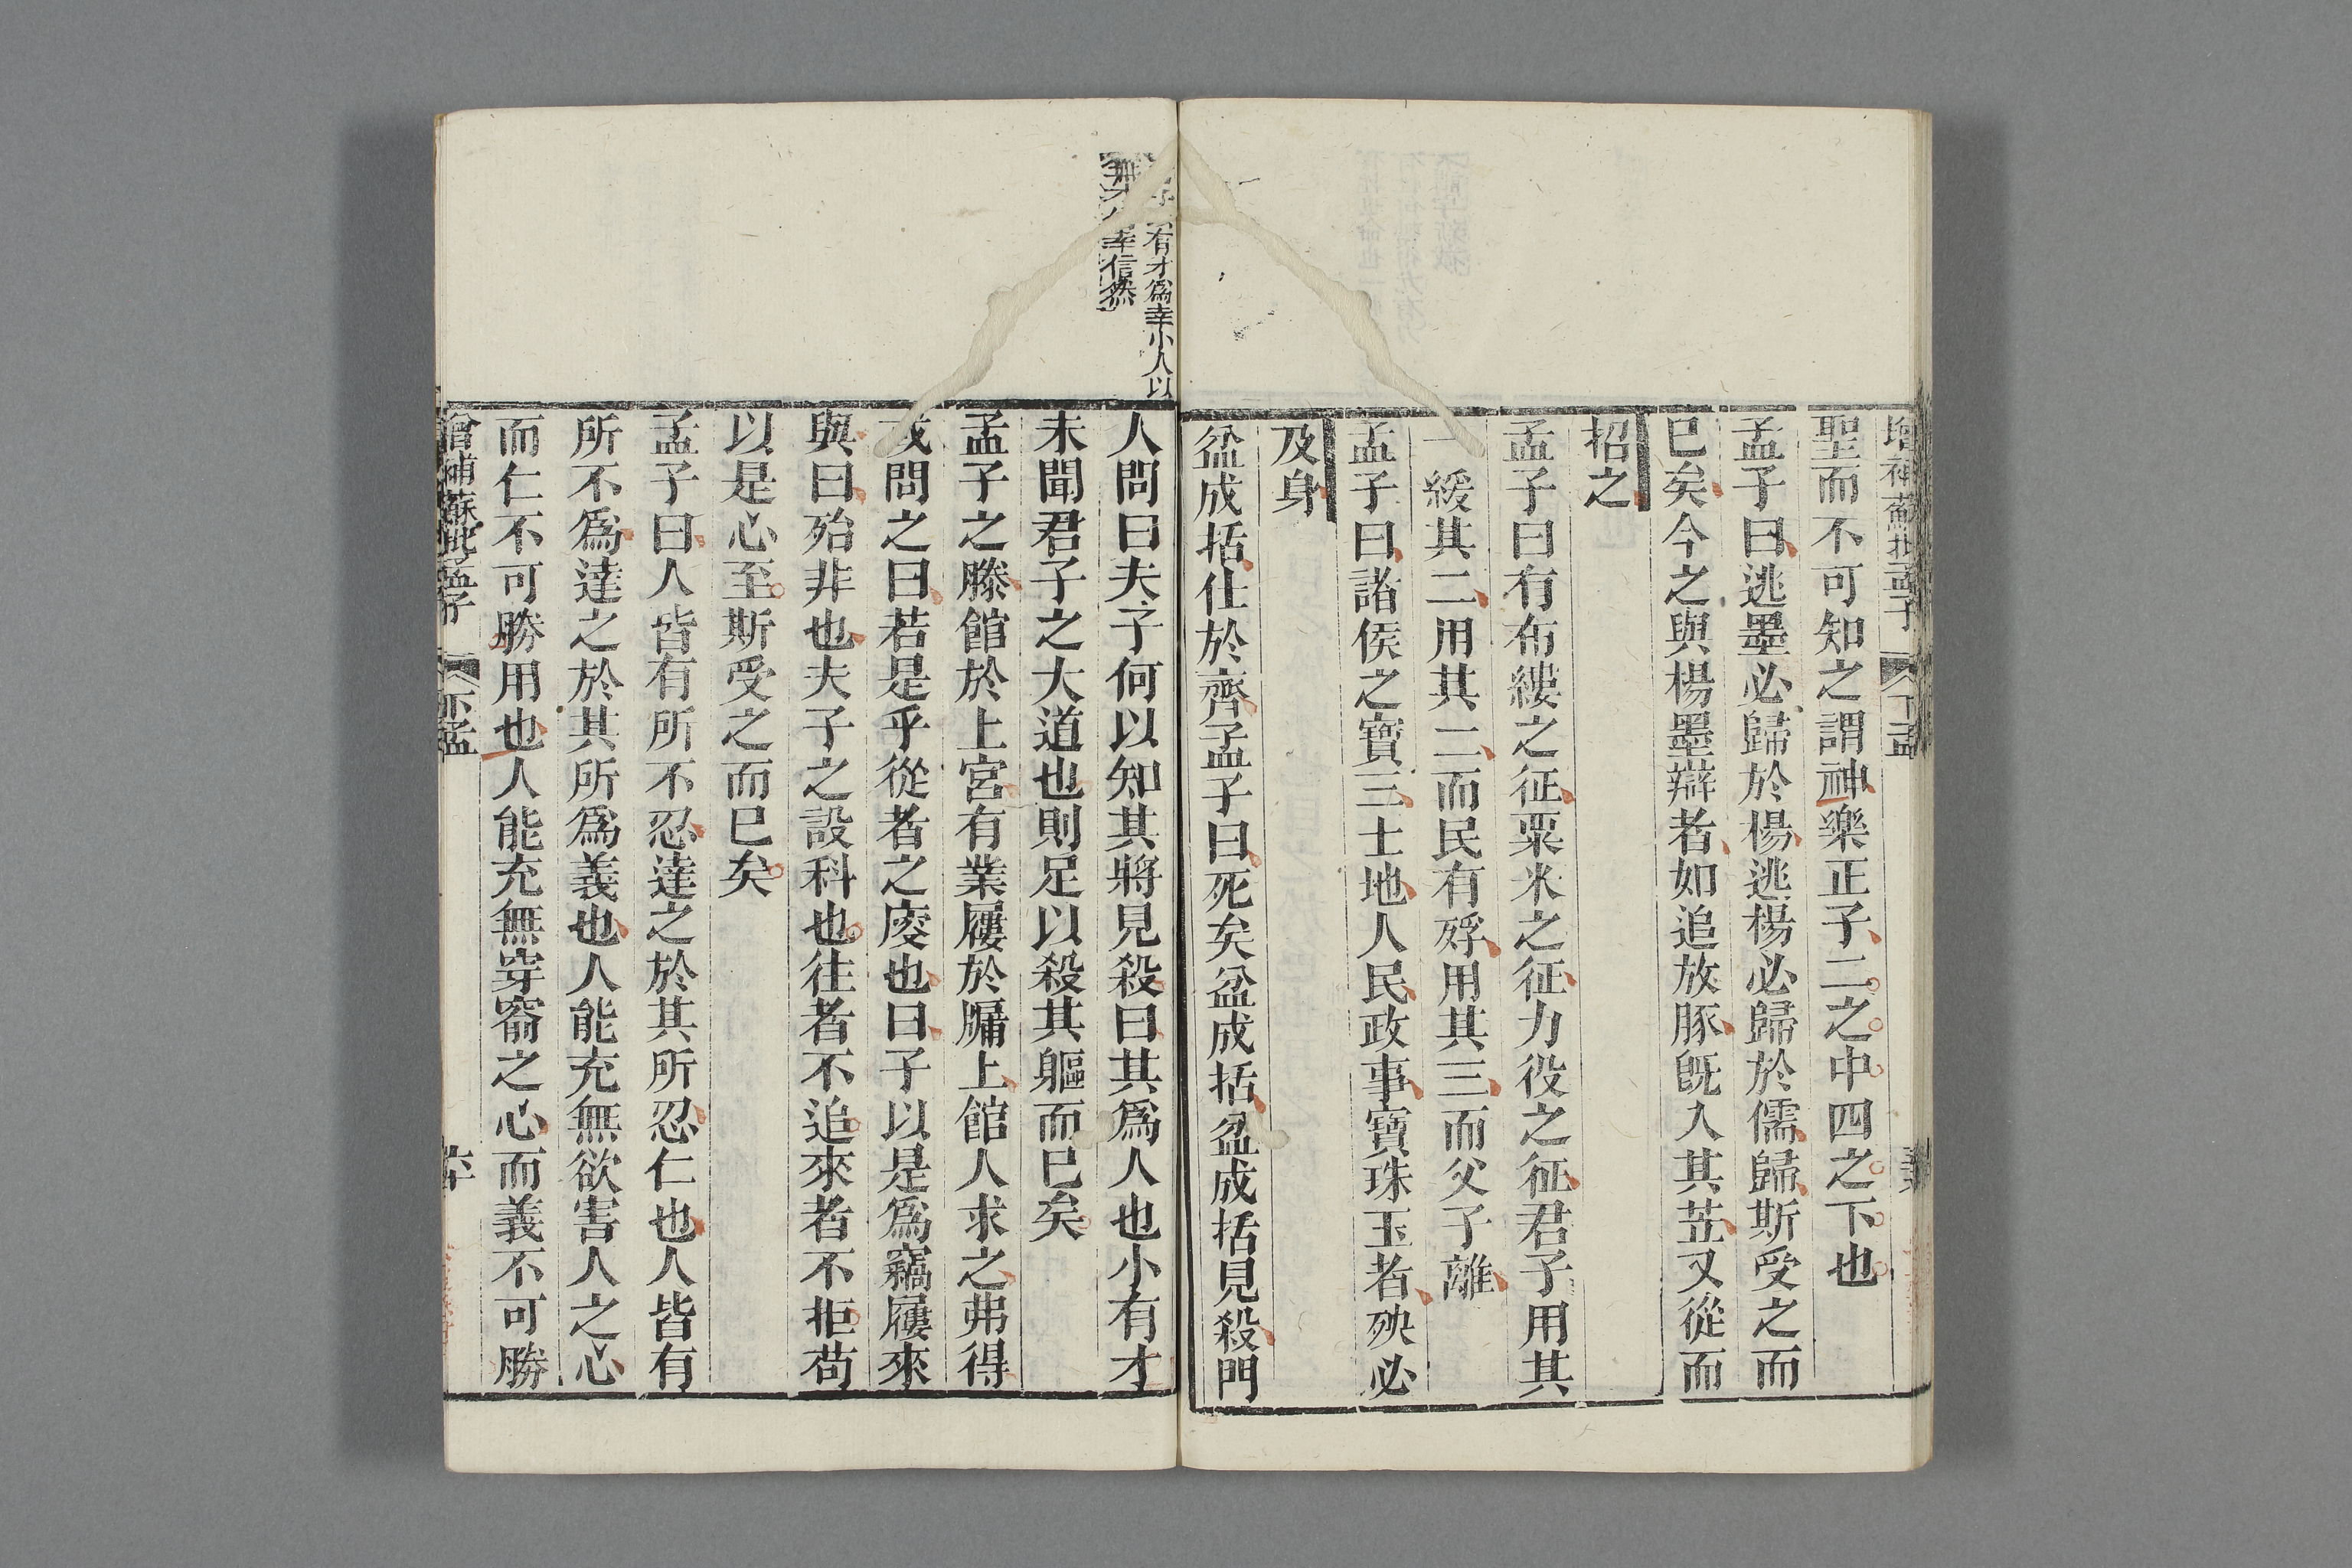 聖而不可知之謂神樂正子二之中四之下也
孟子曰逃墨必歸於楊逃楊必歸於儒歸斯受之而
已矣今之與楊墨辯者如追放豚旣入其苙又從而
招之
孟子曰有布縷之征粟米之征力役之征君子用其
一緩其二用其二而民有殍用其三而父子離
孟子曰諸侯之寶三土地人民政事寶珠玉者殃必
及身
盆成括仕於齊孟子曰死矣盆成括盆成括見殺門
有才爲幸小人以
無才爲幸信然
人問曰夫子何以知其將見殺曰其爲人也小有才
未聞君子之大道也則足以殺其軀而已矣
孟子之滕館於上宮有業屨於牖上館人求之弗得
或問之曰若是乎從者之廋也曰子以是爲竊屨來
與曰殆非也夫子之設科也往者不追來者不拒苟
以是心至斯受之而已矣
孟子曰人皆有所不忍達之於其所忍仁也人皆有
所不爲達之於其所爲義也人能充無欲害人之心
而仁不可勝用也人能充無穿窬之心而義不可勝
增補蘇批孟子 下孟 六十